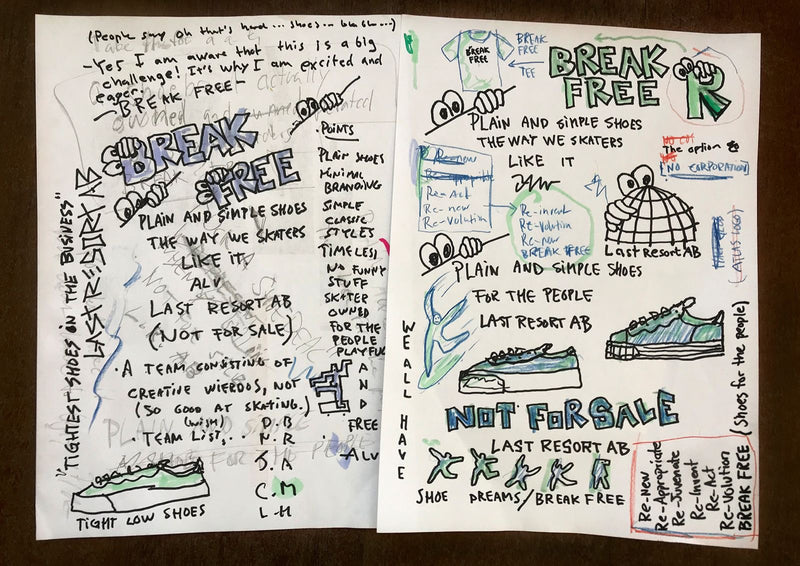 (People say oh that's hard... shoes... bla bla...)
- Yes I am aware that this is a big
challenge! It's why I am excited and
eager.
- BREAK FREE -
BREAK
FREE
PLAIN AND SIMPLE SHOES
THE WAY WE SKATERS
LIKE IT
ALV
LAST RESORT AB
(NOT FOR SALE)
• A TEAM CONSISTING OF
CREATIVE WIERDOS, NOT
(SO GOOD AT SKATING.)
(wish)
• TEAM LIST...
D.B
N.R
S.A
C.M
L.H
TIGHT LOW SHOES
"TIGHTEST SHOES ON THE BUSINESS"
LAST RESORT AB
• POINTS
PLAIN SHOES
MINIMAL
BRANDING
SIMPLE
CLASSIC
STYLES
TIMELESS
NO FUNNY
STUFF
SKATER
OWNED
FOR THE
PEOPLE
PLAYFUL
AND
FREE
- ALV
BREAK
FREE
BREAK
FREE
TEE
BREAK
FREE
R
PLAIN AND SIMPLE SHOES
THE WAY WE SKATERS
LIKE IT
The option to
[NO CORPORATION]
Re-Act
Re-new
Re-volution
Re-invent
Re-volution
Re-now
BREAK FREE
Last Resort AB
(ATLAS LOGO)
PLAIN AND SIMPLE SHOES
FOR THE PEOPLE
LAST RESORT AB
WE ALL HAVE
NOT FOR SALE
LAST RESORT AB
SHOE DREAMS/BREAK FREE
(Shoes for the people)
Re-New
Re-Appropriate
Re-Juvenate
Re-Invent
Re-Act
Re-Volution
BREAK FREE